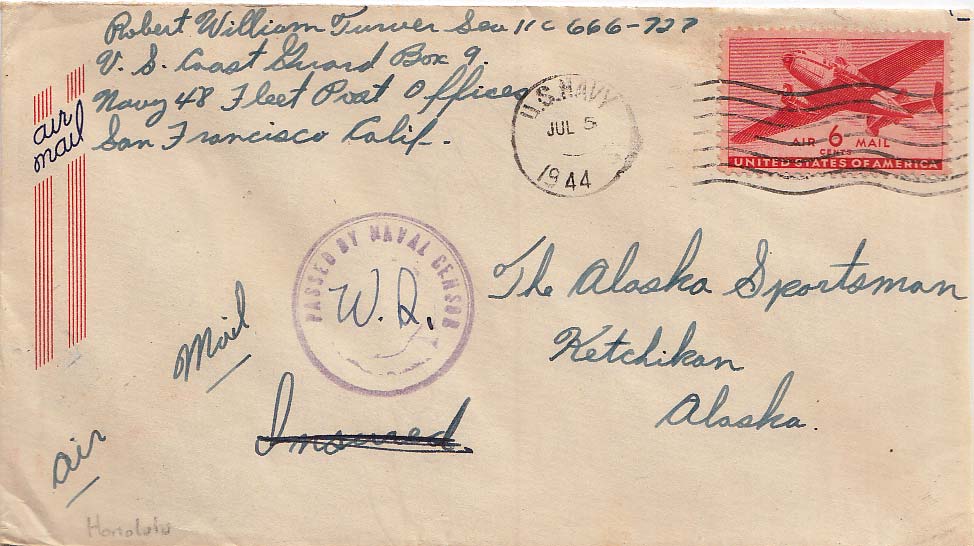 Robert William Turver Sea 1/c 666-727
U. S. Coast Guard Box 9.
Navy 48 Fleet Post Office
San Francisco Calif.
air
mail
U.S. NAVY
JUL 5
1944
AIR 6 MAIL
CENTS
UNITED STATES OF AMERICA
PASSED BY NAVAL CENSOR
W.R.
The Alaska Sportsman
Ketchikan
Alaska.
Air Mail
Insured.
Honolulu